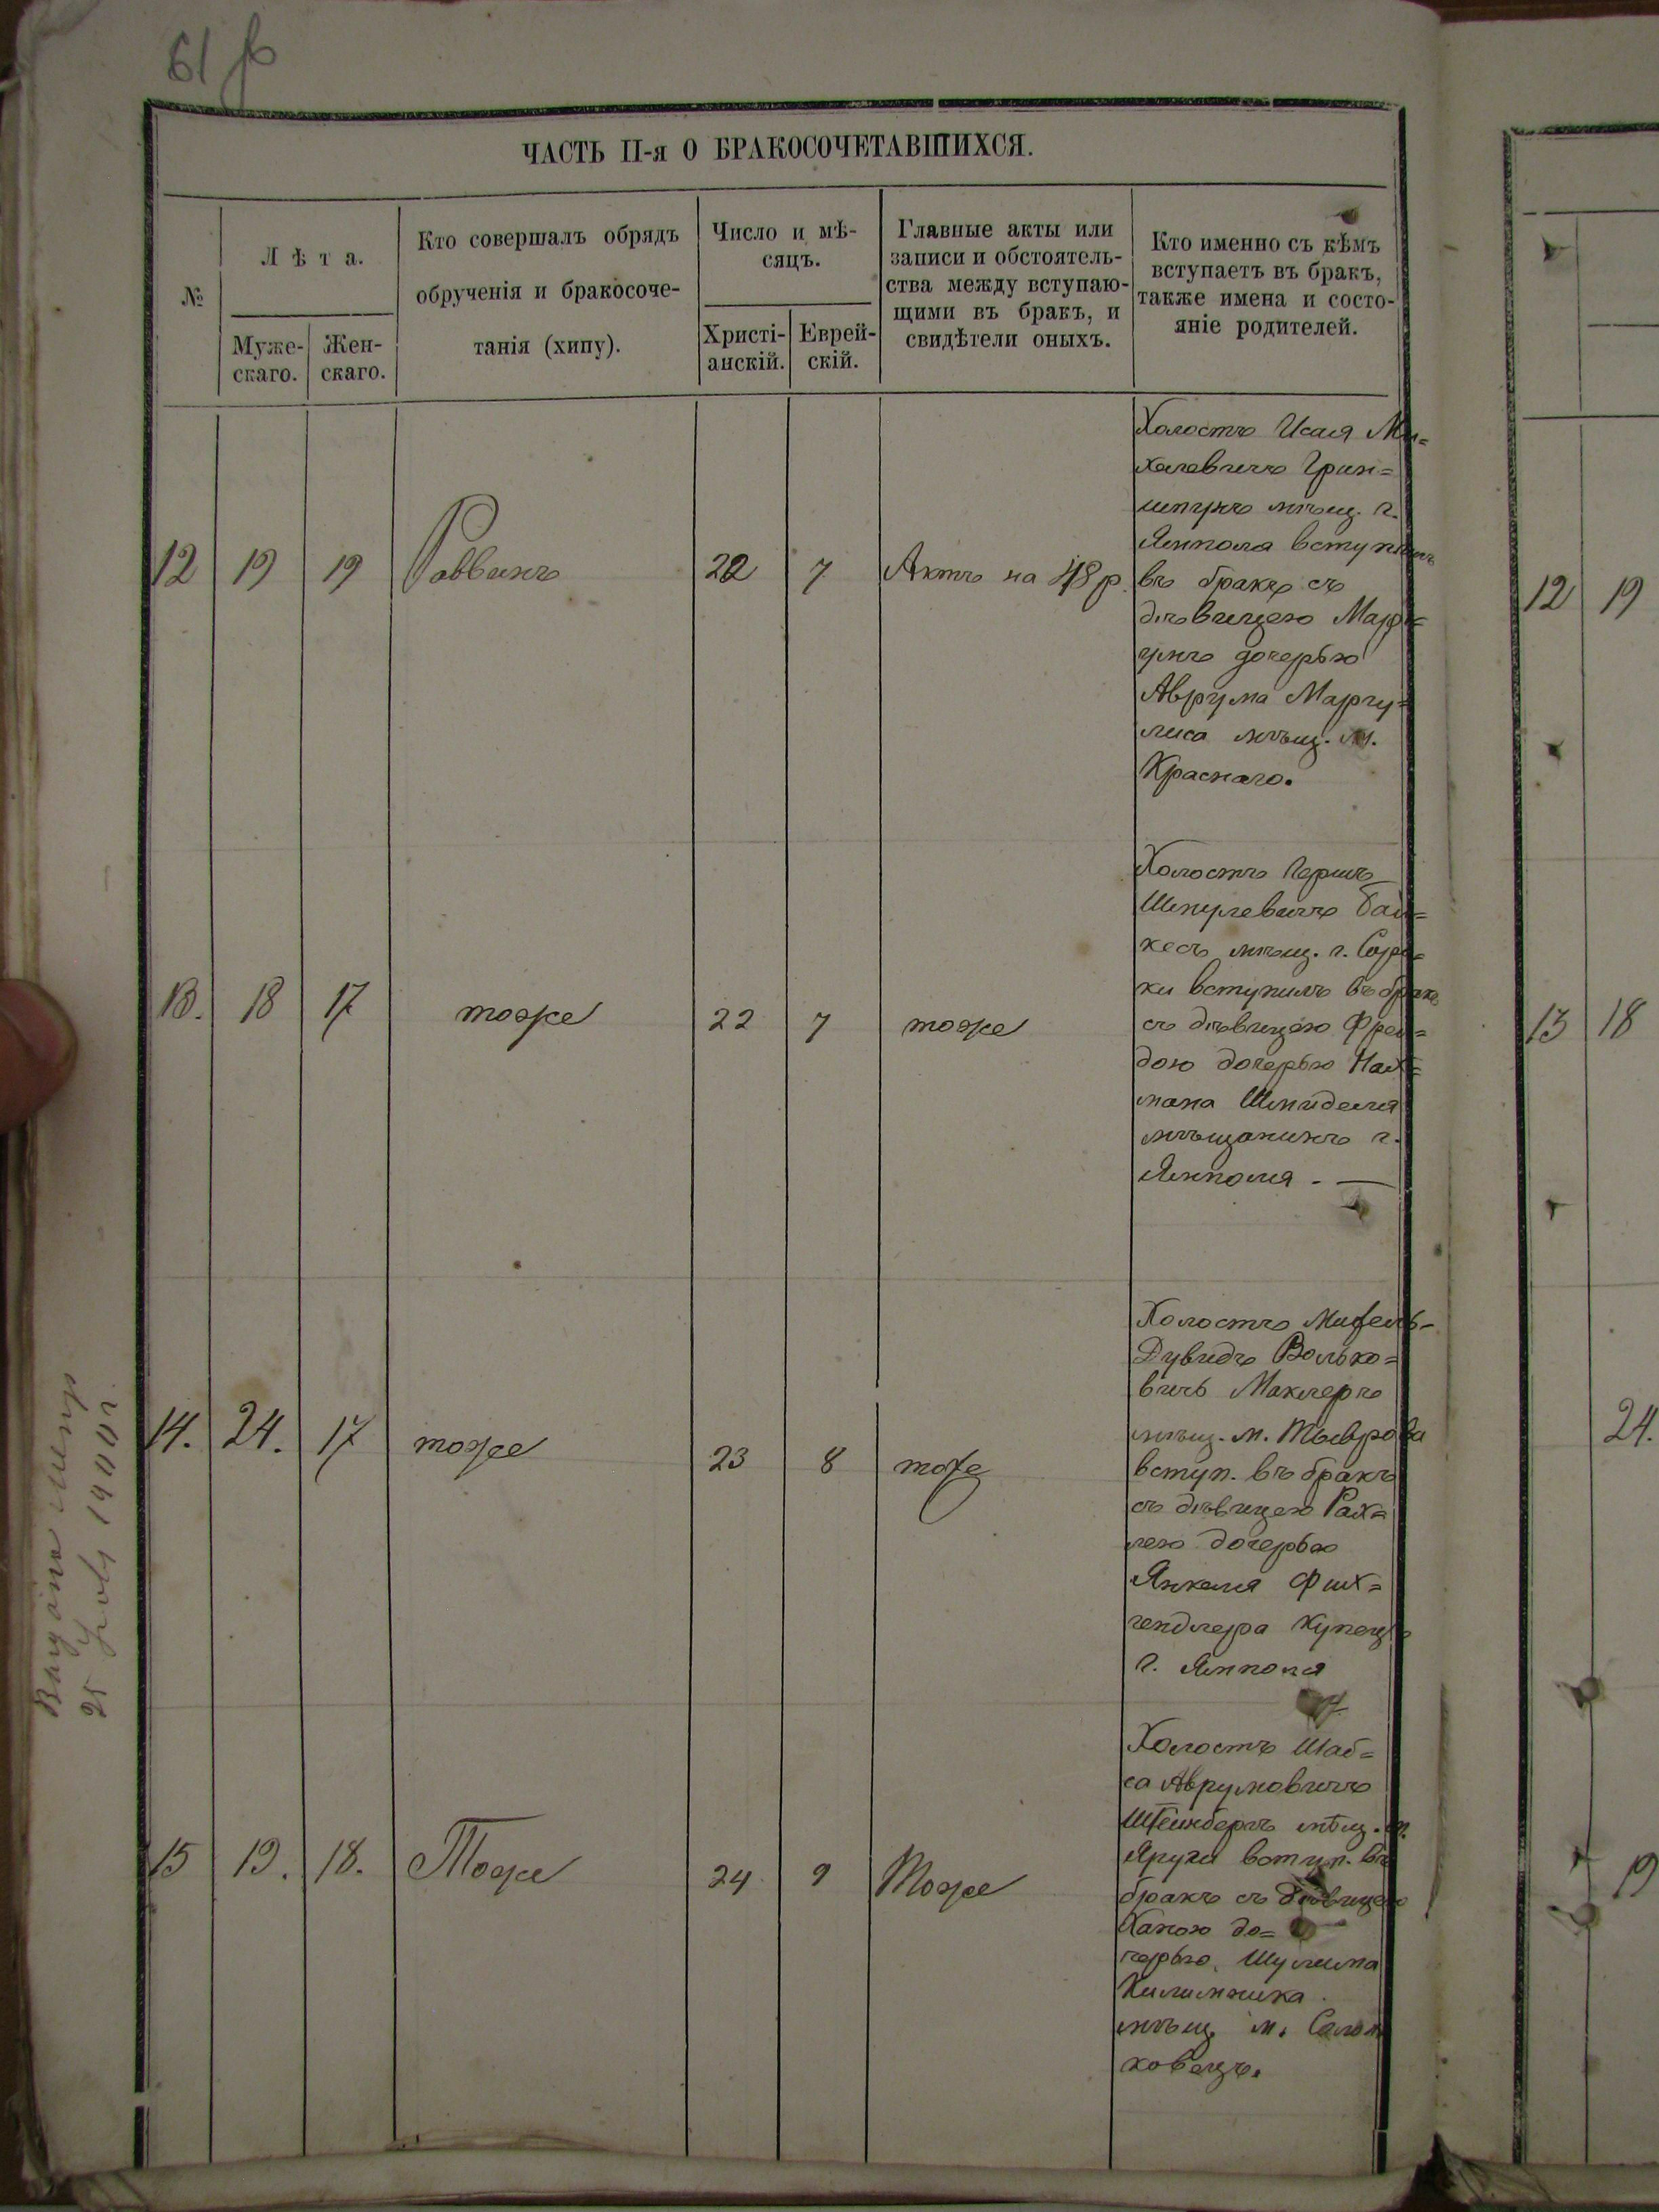 61
ЧАСТЬ II-я О БРАКОСОЧЕТАВШИХСЯ.
№
Лѣта.
Муже-
скаго.
Жен-
скаго.
Кто совершалъ обрядъ
обрученія и бракосоче-
танія (хипу).
Число и мѣ-
сяцъ.
Христі-
анскій.
Еврей-
скій.
Главные акты или
записи и обстоятель-
ства между вступаю-
щими въ бракъ, и
свидѣтели оныхъ.
Кто именно съ кѣмъ
вступаетъ въ бракъ,
также имена и состо-
яніе родителей.
12 19 19 Раввинъ 22 7 Актъ на 48 р.
Холостъ Исая Ми=
халевичъ Грин=
шпунъ мѣщ. г.
Ямпола вступилъ
въ бракъ съ
дѣвицею
дочерью
Аврума Маргу=
лиса мѣщ. м.
Краснаго.
13. 18 17 тоже 22 7 тоже
Холостъ Гершъ
Шмулевичъ
кесъ мѣщ. г. Соро=
ки вступилъ въ бракъ
съ дѣвицею Фрей=
дою дочерью Нах=
мана
мѣщанинъ г.
Ямполя. —
14. 24. 17 тоже 23 8 тоже
Холостъ Михель-
Дувидъ Волько=
вичъ Маклеръ
мѣщ. м. Тыврова
вступ. въ бракъ
съ дѣвицею Рах=
лею дочерью
Янкеля Фих=
гендлера Купецъ
г. Ямполя
15 19. 18. Тоже 24 9 Тоже
Холостъ Шаб=
са Аврумовичъ
Штейнбергъ мѣщ. м.
Яруги вступ. въ
бракъ съ дѣвицею
Ханою до=
черью Шулима
Килимника
мѣщ. м. Солом
ковецъ.
Выдана
25 1900 г.
12 19
13 18
24.
19